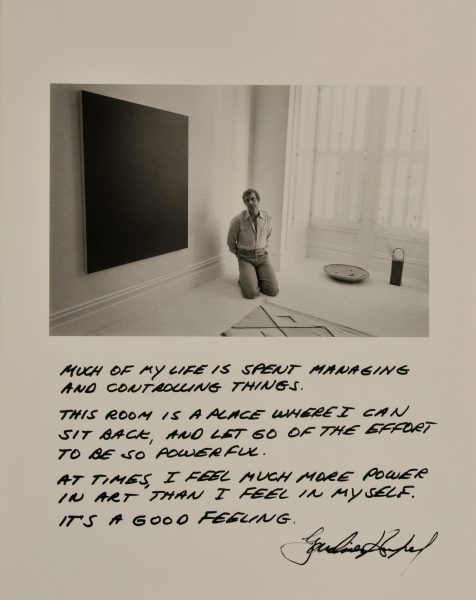 MUCH OF MY LIFE IS SPENT MANAGING
AND CONTROLLING THINGS.
THIS ROOM IS A PLACE WHERE I CAN
SIT BACK, AND LET GO OF THE EFFORT
TO BE SO POWERFUL.
AT TIMES, I FEEL MUCH MORE POWER
IN ART THAN I FEEL IN MYSELF.
IT'S A GOOD FEELING.